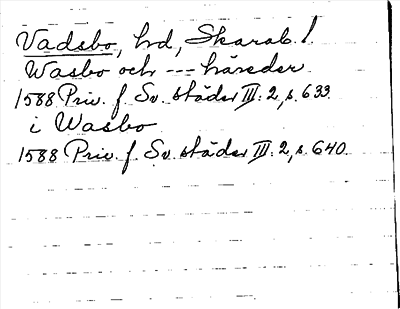 Vadsbo, hd, Skarab. l.
Wasbo och --- häreder
1588 Priv. f. Sv. städer III: 2, s. 633.
i Wasbo
1588 Priv. f. Sv. städer III: 2, s. 640.